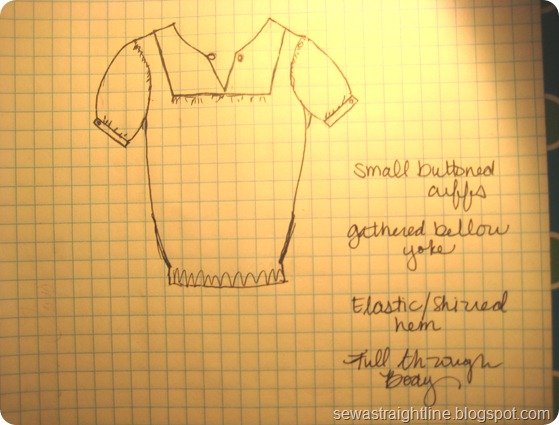 small buttoned
cuffs
gathered bellow
yoke
Elastic/shirred
hem
Full through
Body
sewastraightline.blogspot.com